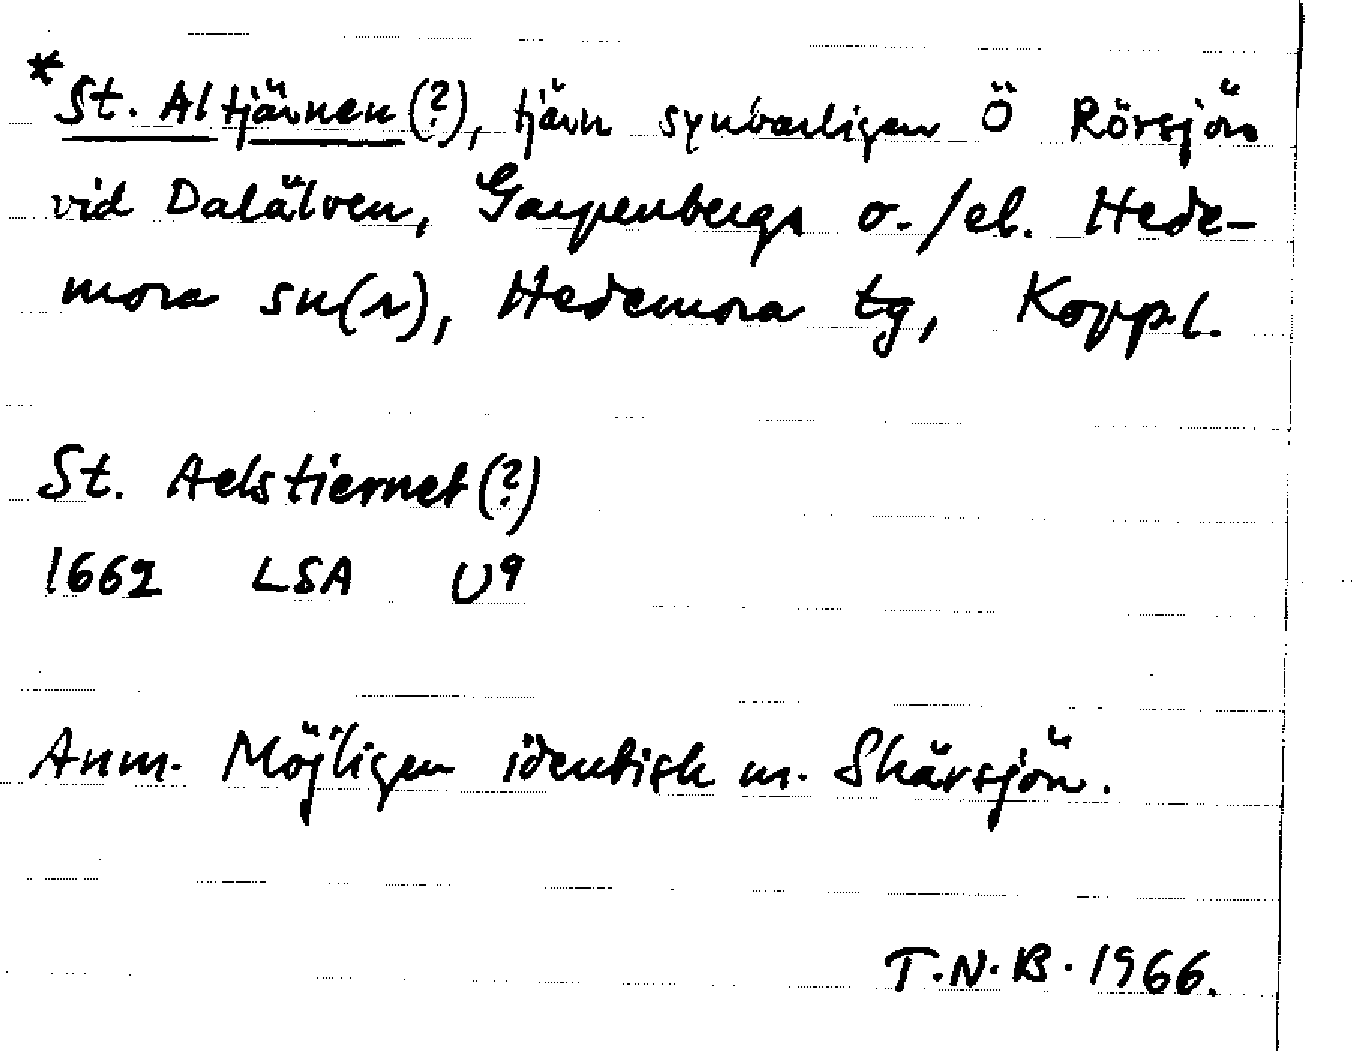 * St. Altjärnen(?), tjärn synbarligen Ö Rörsjön
vid Dalälven, Garpenbergs o./el. Hede-
mora sn(r), Hedemora tg, Koppl.
St. Aelstiernet(?)
1662 LSA U9
Anm. Möjligen identisk m. Skärsjön.
T.N.B. 1966.